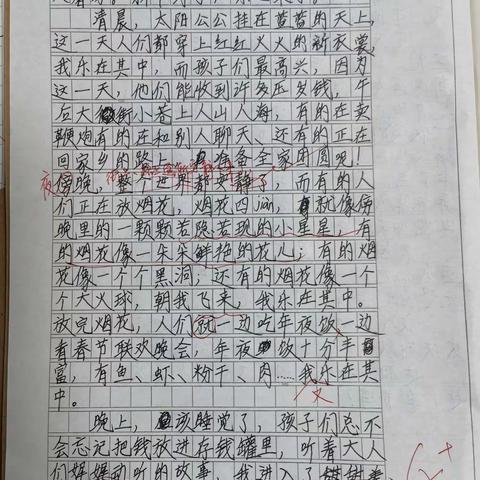 清晨，太阳公公挂在蓝蓝的天上，
这一天人们都穿上红红火火的新衣裳
我乐在其中，而孩子们最高兴，因为
这一天，他们能收到许多压岁钱，午
后大街小巷上人山人海，有的在卖
鞭炮有的在和别人聊天、还有的正在
回家乡的路上，准备全家团圆呢！
夜傍晚，整个世界都安静了，而有的人
们正在放烟花，烟花四jiàn，就像傍
晚里的一颗颗若隐若现的小星星，有
的烟花像一朵朵鲜艳的花儿；有的烟
花像一个个黑洞；还有的烟花像一个
个大火球，朝我飞来，我乐在其中。
放完烟花，人们就一边吃年夜饭一边
看春节联欢晚会，年夜饭十分丰
富，有鱼、虾、粉干、肉……我乐在其
中。
晚上，该睡觉了，孩子们总不
会忘记把钱放进存钱罐里，听着大人
们娓娓动听的故事，我进入了